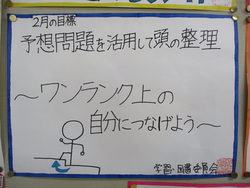 2月の目標
予想問題を活用して頭の整理
〜ワンランク上の
自分につなげよう〜
学習・図書委員会